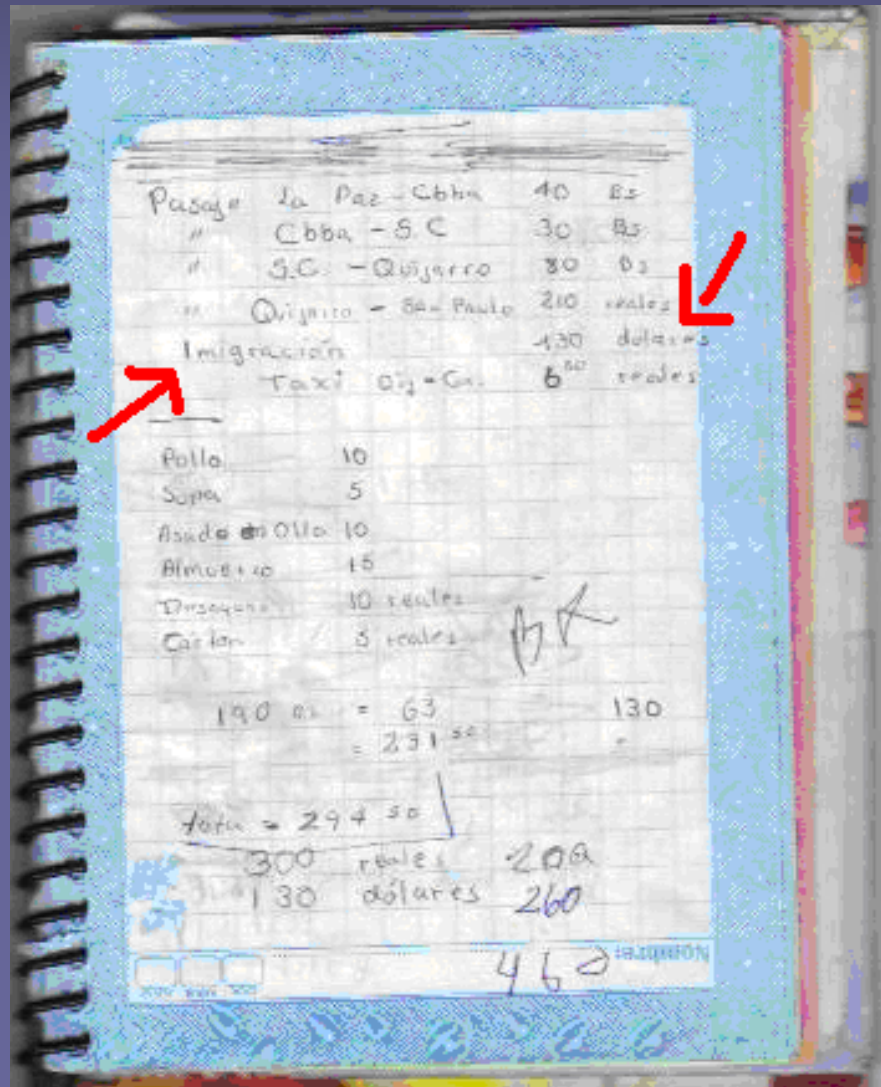 Pasaje La Paz - Cbba 40 Bs
" Cbba - S.C 30 Bs
" S.C. - Quijarro 80 Bs
" Quijarro - Sao Paulo 210 reales
Imigración 130 dolares
Taxi Qij - Co. 6 50 reales
Pollo 10
Sopa 5
Asado en Olla 10
Almuerzo 15
Desayuno 10 reales
5 reales
190 Bs = 63 130
= 231 50
total = 294 50
300 reales 200
130 dólares 260
460
Nombre: